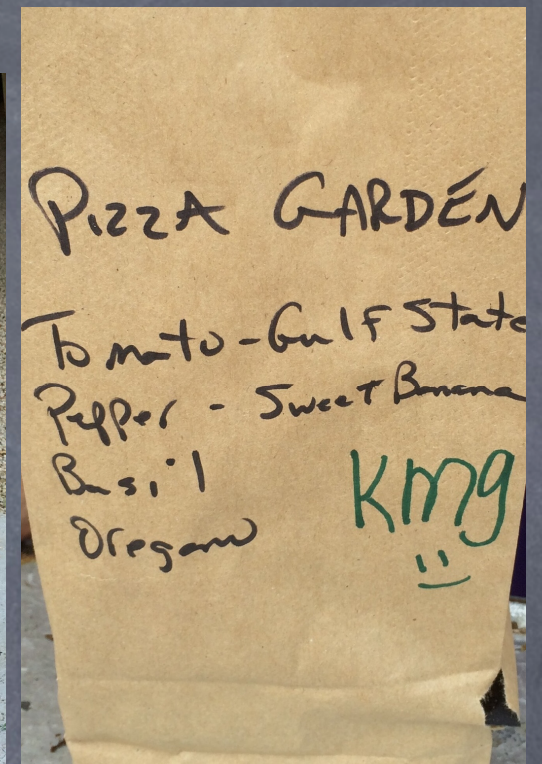 PIZZA GARDEN
Tomato - Gulf State
Pepper - Sweet Banana
Basil
Oregano
kmg